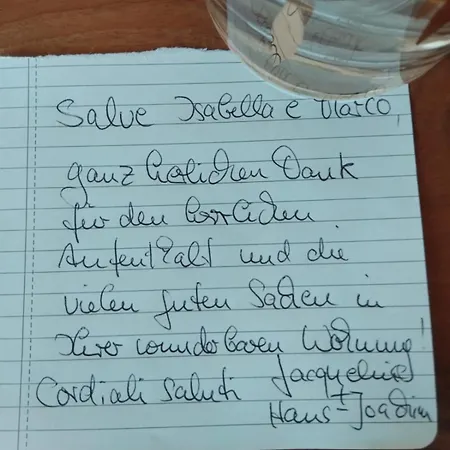 Salve Isabella e Marco,
ganz herzlichen Dank
für den herrlichen
Aufenthalt und die
vielen guten Sachen in
Ihrer wunderbaren Wohnung!
Cordiali Saluti Jacqueline
+
Hans-Joachim